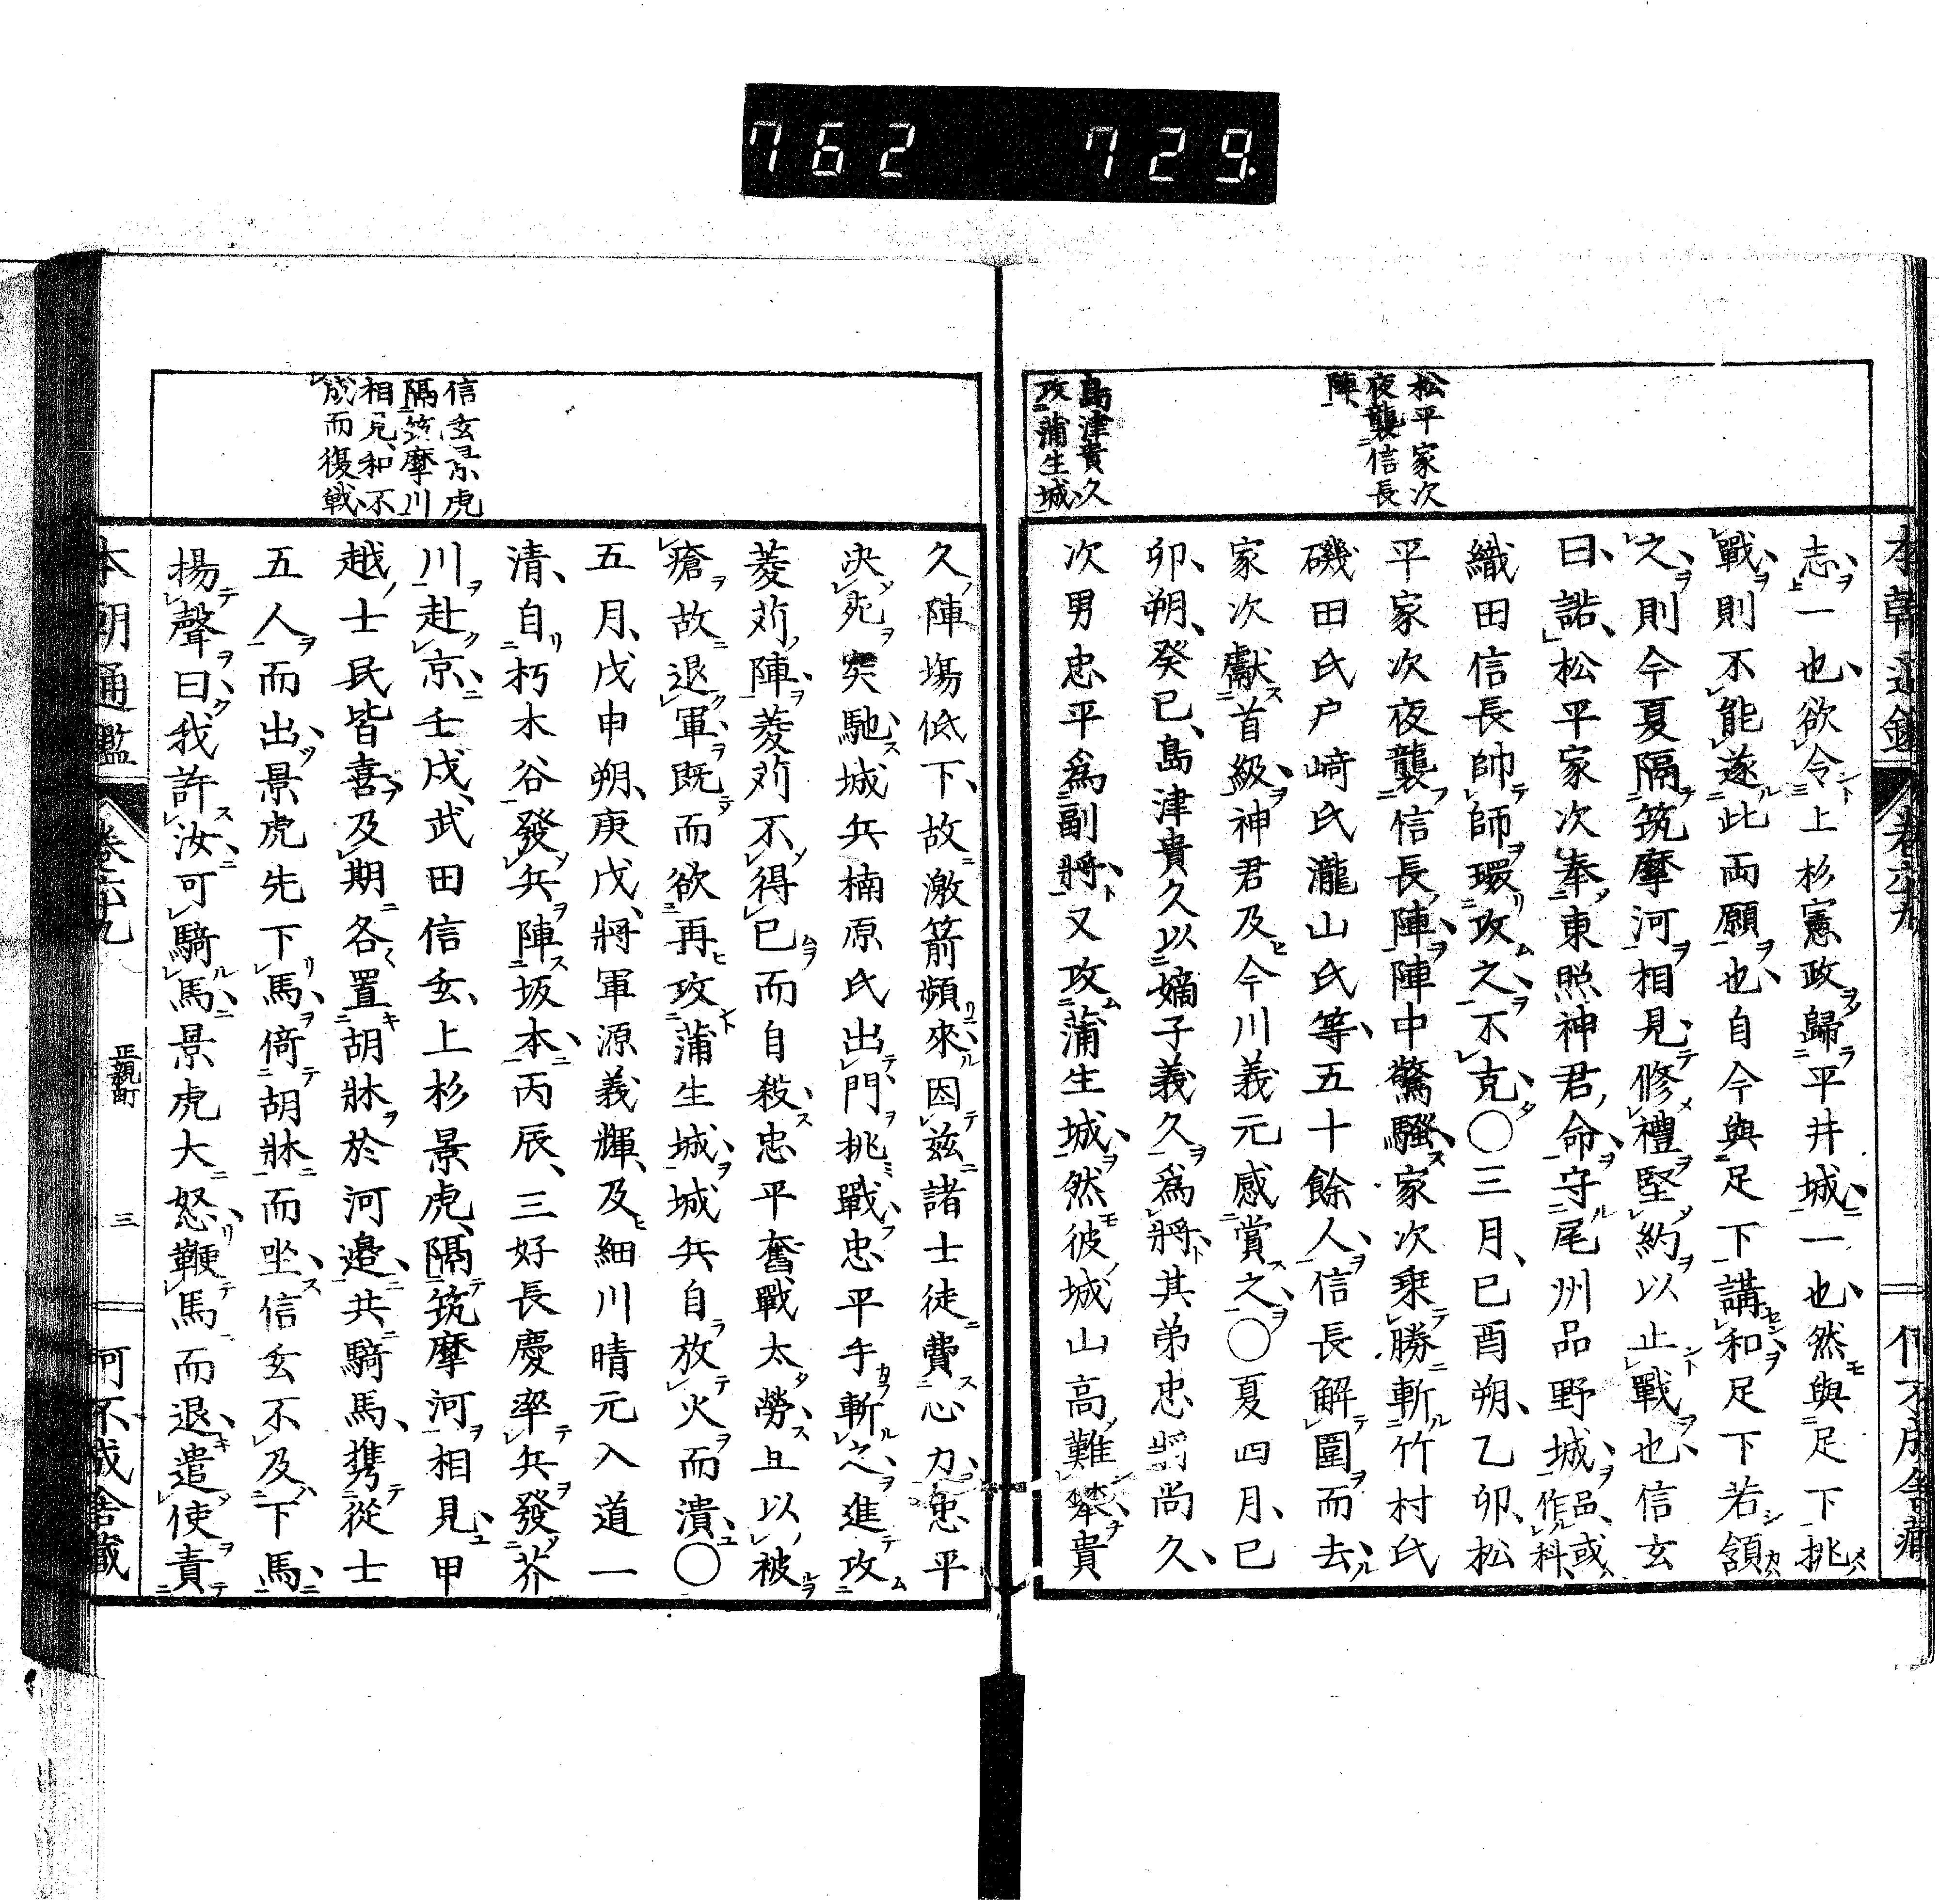 762 729
松平家次
夜襲信長
陣
島津貴久
攻蒲生城
志一也欲令上杉憲政歸平井城一也然與足下挑
戰則不能遂此両願也自今與足下講和足下若頷
之則今夏隔筑摩河相見修禮堅約以止戰也信玄
曰諾松平家次奉東照神君命守尾州品野城品或作科
織田信長帥師環攻之不克〇三月己酉朔乙卯松
平家次夜襲信長陣陣中驚騷家次乗勝斬竹村氏
磯田氏戸﨑氏瀧山氏等五十餘人信長解圍而去
家次獻首級神君及今川義元感賞之〇夏四月己
卯朔癸巳島津貴久以嫡子義久為將其弟忠將尚久
次男忠平為副將又攻蒲生城然彼城山高難攀貴
信玄景虎
隔筑摩川
相見和不
成而復戦
久陣場低下故激箭頻來因茲諸士徒費心力忠平
决死突馳城兵楠原氏出門挑戰忠平手斬之進攻
菱苅陣菱苅不得已而自殺忠平奮戰太勞且以被
瘡故退軍既而欲再攻蒲生城城兵自放火而潰〇
五月戊申朔庚戌將軍源義輝及細川晴元入道一
清自朽木谷發兵陣坂本丙辰三好長慶率兵發芥
川赴京壬戌武田信玄上杉景虎隔筑摩河相見甲
越士民皆喜及期各置胡牀於河邉共騎馬携從士
五人而出景虎先下馬倚胡牀而坐信玄不及下馬
揚聲曰我許汝可騎馬景虎大怒鞭馬而退遣使責
本朝通鑑 卷六十九 正親町 三